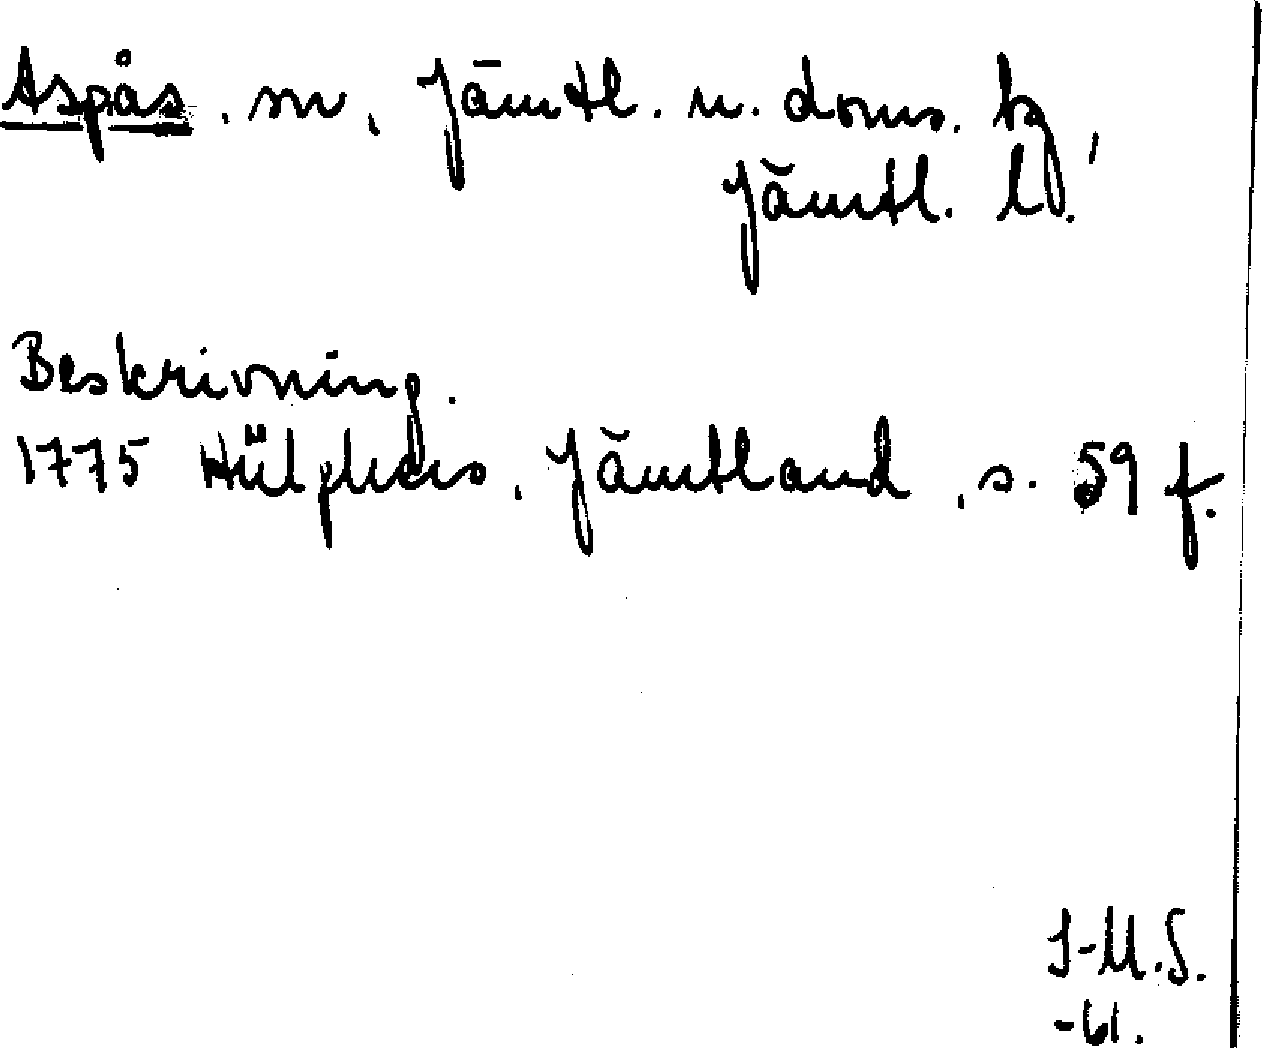 Aspås, sn, Jämtl. n. doms. tg,
Jämtl. l.
Beskrivning.
1775 Hülphers, Jämtland, s. 59 f.
I-M.S.
-61.